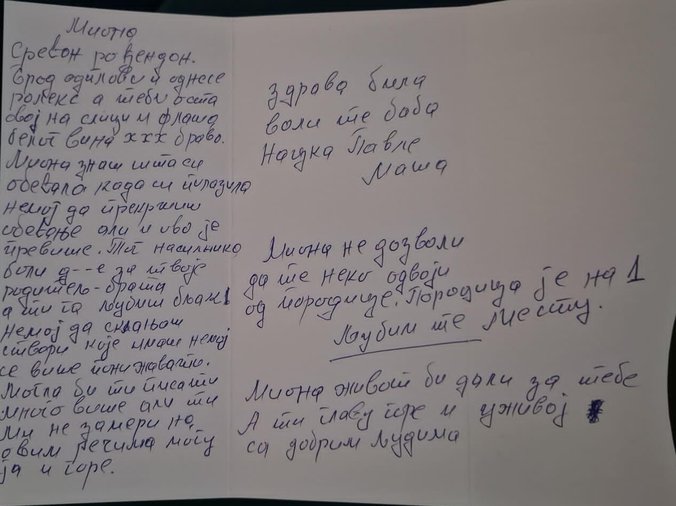 Миона
Срећан рођендан.
Брод отплови и однесе
ролекс а теби оста
овај на слици и флаша
белог вина ххх браво.
Миона знаш шта си
обећала када си полазила
немој да прекршиш
обећање али и ово је
превише. Тог насилника
боли д--е за твоје
родитељ-браћа
а ти га љубиш
немој да склањаш
ствари које имаш немој
се више понижавати.
Могла би ти писати
много више али ти
ми не замери на
овим речима могу
ја и горе.
здрава била
воли те баба
Наука Павле
Маша
Миона не дозволи
да те неко одвоји
од породице. Породица је на 1
Љубим те месту.
Миона живот би дали за тебе
А ти главу горе и уживај
са добрим људима